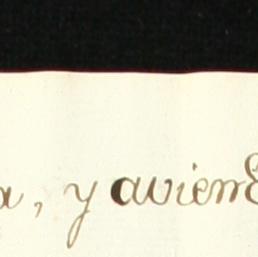 a, y avien